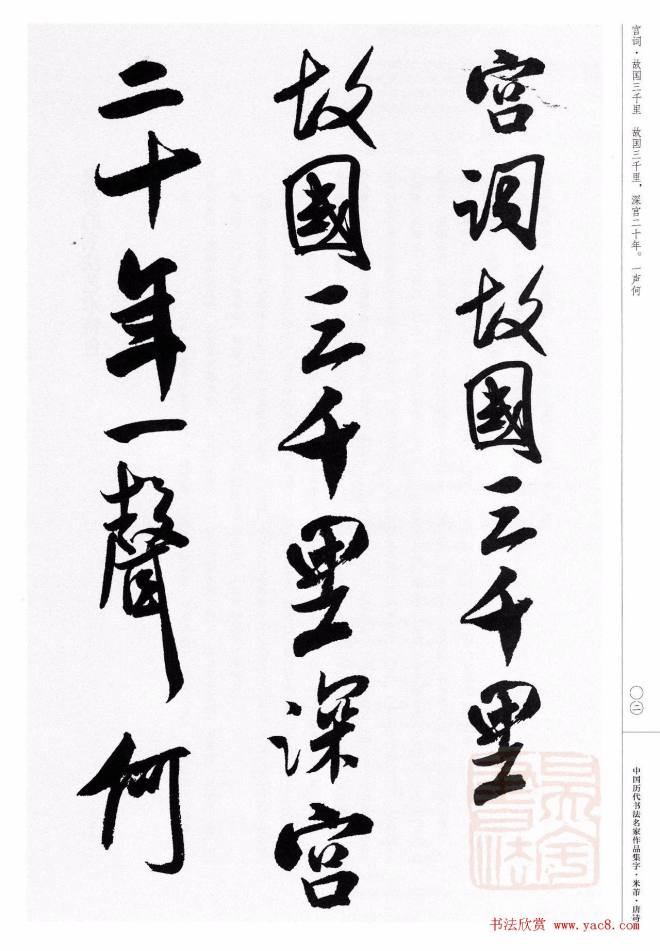 宫词故國三千里
故國三千里深宫
二十年一聲何
宫词·故国三千里　故国三千里，深宫二十年。一声何
〇二
中国历代书法名家作品集字·米芾·唐诗
书法欣赏 www.yac8.com